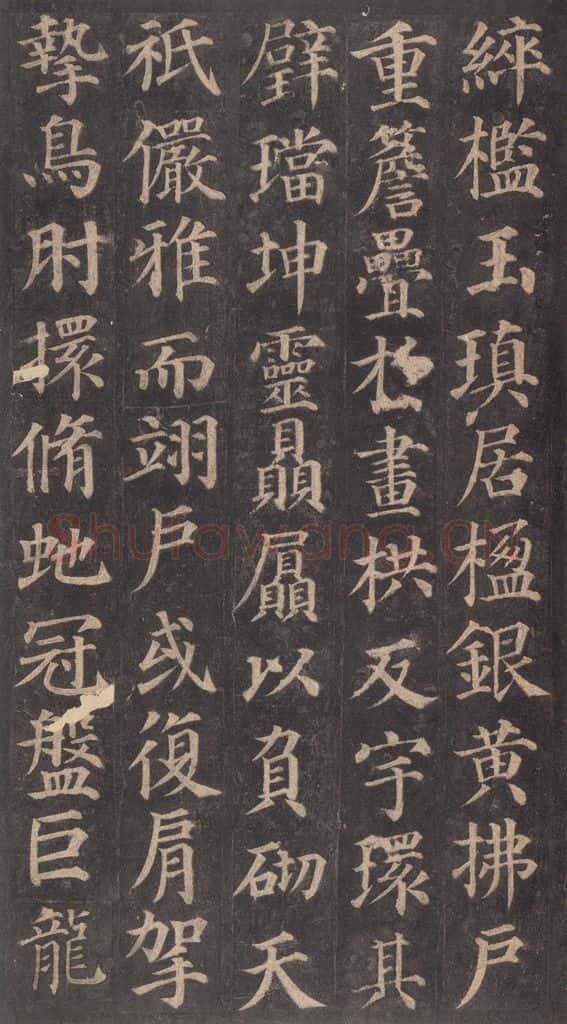 綷檻玉瑱居楹銀黃拂戶
重簷疊於畫栱反宇環其
璧璫坤靈贔屭以負砌天
祇儼雅而翊戶或復肩挐
摯鳥肘擐脩虵冠盤巨龍
Shufawang.cn